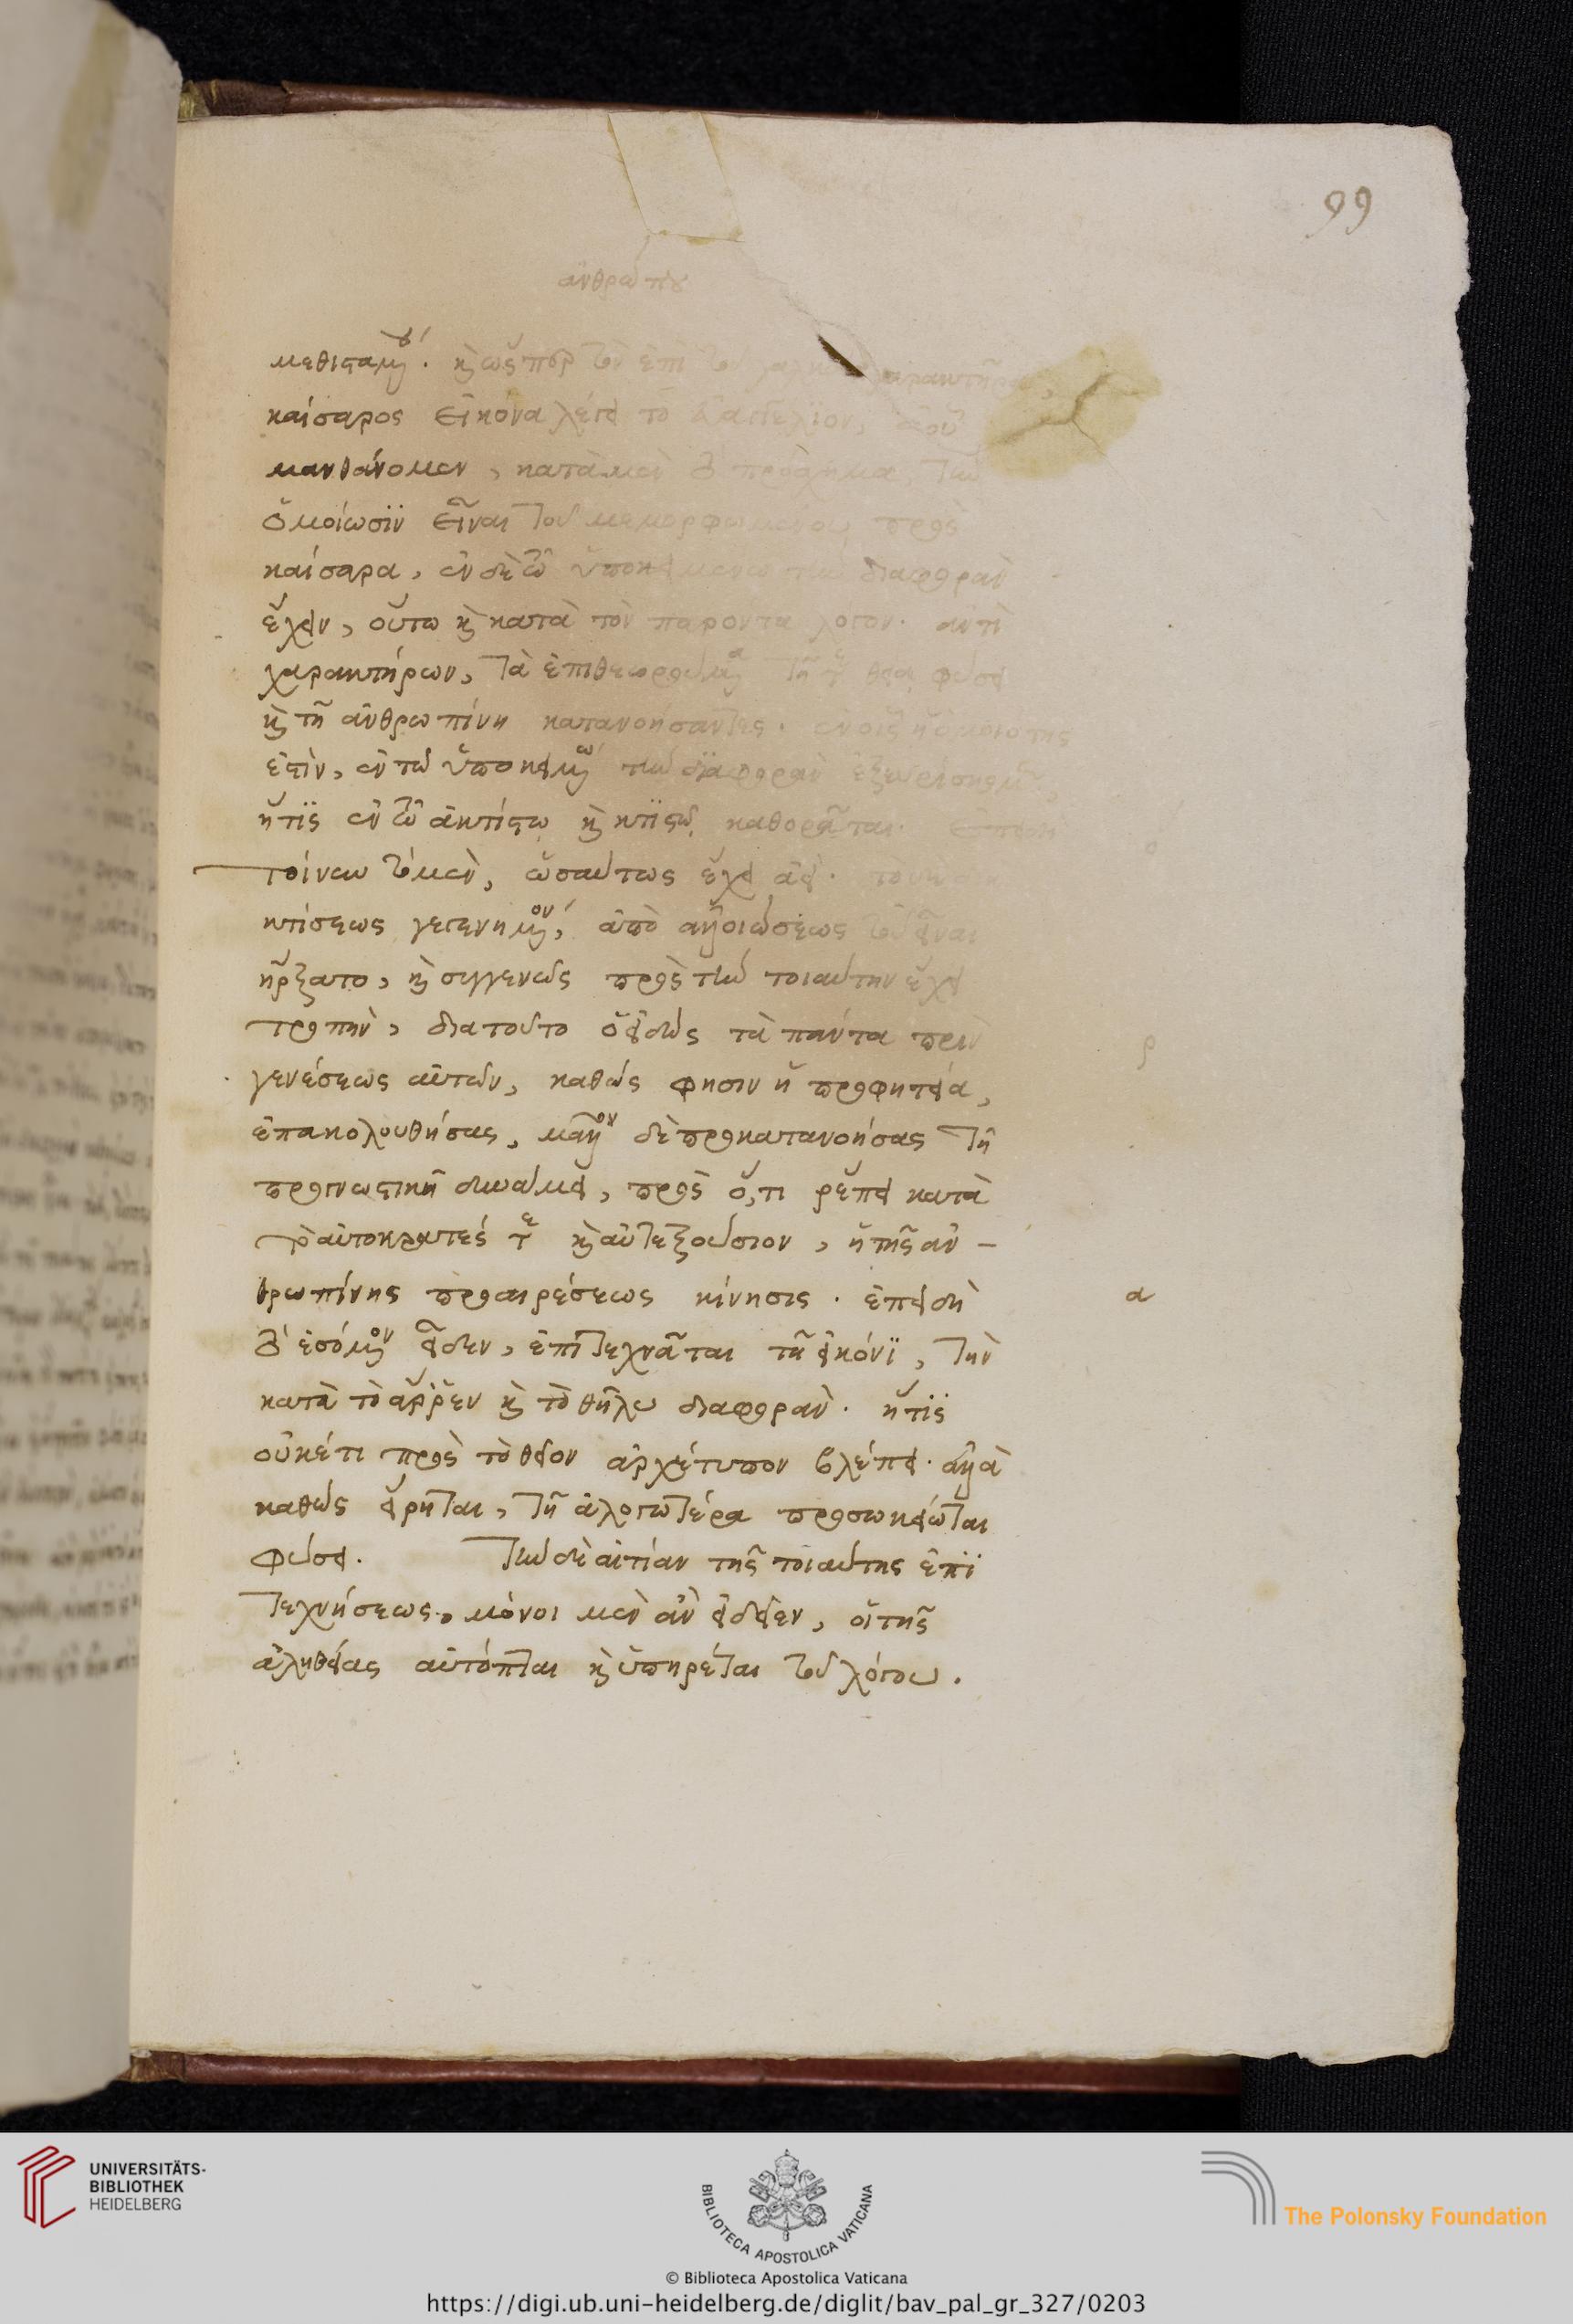 99
ἀνθρώπου
μεθισταμένου. καὶ ὥσπερ τὸν ἐπὶ τοῦ χαλκοῦ χαρακτῆρα
καίσαρος εἰκόνα λέγει τὸ εὐαγγέλιον, ἀφ' οὗ
μανθάνομεν, κατὰ μὲν τὸ πρόσχημα, τὴν
ὁμοίωσιν εἶναι τοῦ μεμορφωμένου πρὸς
καίσαρα, ἐν δὲ τῷ ὑποκειμένῳ τὴν διαφορὰν
ἔχειν, οὕτω καὶ κατὰ τὸν παρόντα λόγον. ἀντὶ
χαρακτήρων, τὰ ἐπιθεωρούμενα τῇ τε θείᾳ φύσει
καὶ τῇ ἀνθρωπίνῃ κατανοήσαντες. ἐν οἷς ἡ ὁμοιότης
ἐστὶν, ἐν τῷ ὑποκειμένῳ τὴν διαφορὰν ἐξευρίσκομεν,
ἥτις ἐν τῷ ἀκτίστῳ καὶ κτιστῷ καθορᾶται. ἐπειδὴ
τοίνυν τὸ μὲν, ὡσαύτως ἔχει ἀεί. τὸ δὲ διὰ
κτίσεως γεγενημένον, ἀπὸ ἀλλοιώσεως τοῦ εἶναι
ἤρξατο, καὶ συγγενῶς πρὸς τὴν τοιαύτην ἔχει
τροπὴν, διατοῦτο ὁ εἰδὼς τὰ πάντα πρὶν
γενέσεως αὐτῶν, καθώς φησιν ἡ προφητεία,
ἐπακολουθήσας, μᾶλλον δὲ προκατανοήσας τῇ
προγνωστικῇ δυνάμει, πρὸς ὅ,τι ῥέπει κατὰ
τὸ αὐτοκρατές τε καὶ αὐτεξούσιον, ἡ τῆς ἀν-
θρωπίνης προαιρέσεως κίνησις. ἐπειδὴ
τὸ ἐσόμενον εἶδεν, ἐπιτεχνᾶται τῇ εἰκόνι, τὴν
κατὰ τὸ ἄρρεν καὶ τὸ θῆλυ διαφορὰν. ἥτις
οὐκέτι πρὸς τὸ θεῖον ἀρχέτυπον βλέπει. ἀλλὰ
καθὼς εἴρηται, τῇ ἀλογωτέρα προσωκείωται
φύσει. Τὴν δὲ αἰτίαν τῆς τοιαύτης ἐπι
τεχνήσεως, μόνοι μὲν ἂν εἰδεῖεν, οἱ τῆς
α
ἀληθείας αὐτόπται καὶ ὑπηρέται τοῦ λόγου.
UNIVERSITÄTS-
BIBLIOTHEK
HEIDELBERG
BIBLIOTECA APOSTOLICA VATICANA
The Polonsky Foundation
© Biblioteca Apostolica Vaticana
https://digi.ub.uni-heidelberg.de/diglit/bav_pal_gr_327/0203